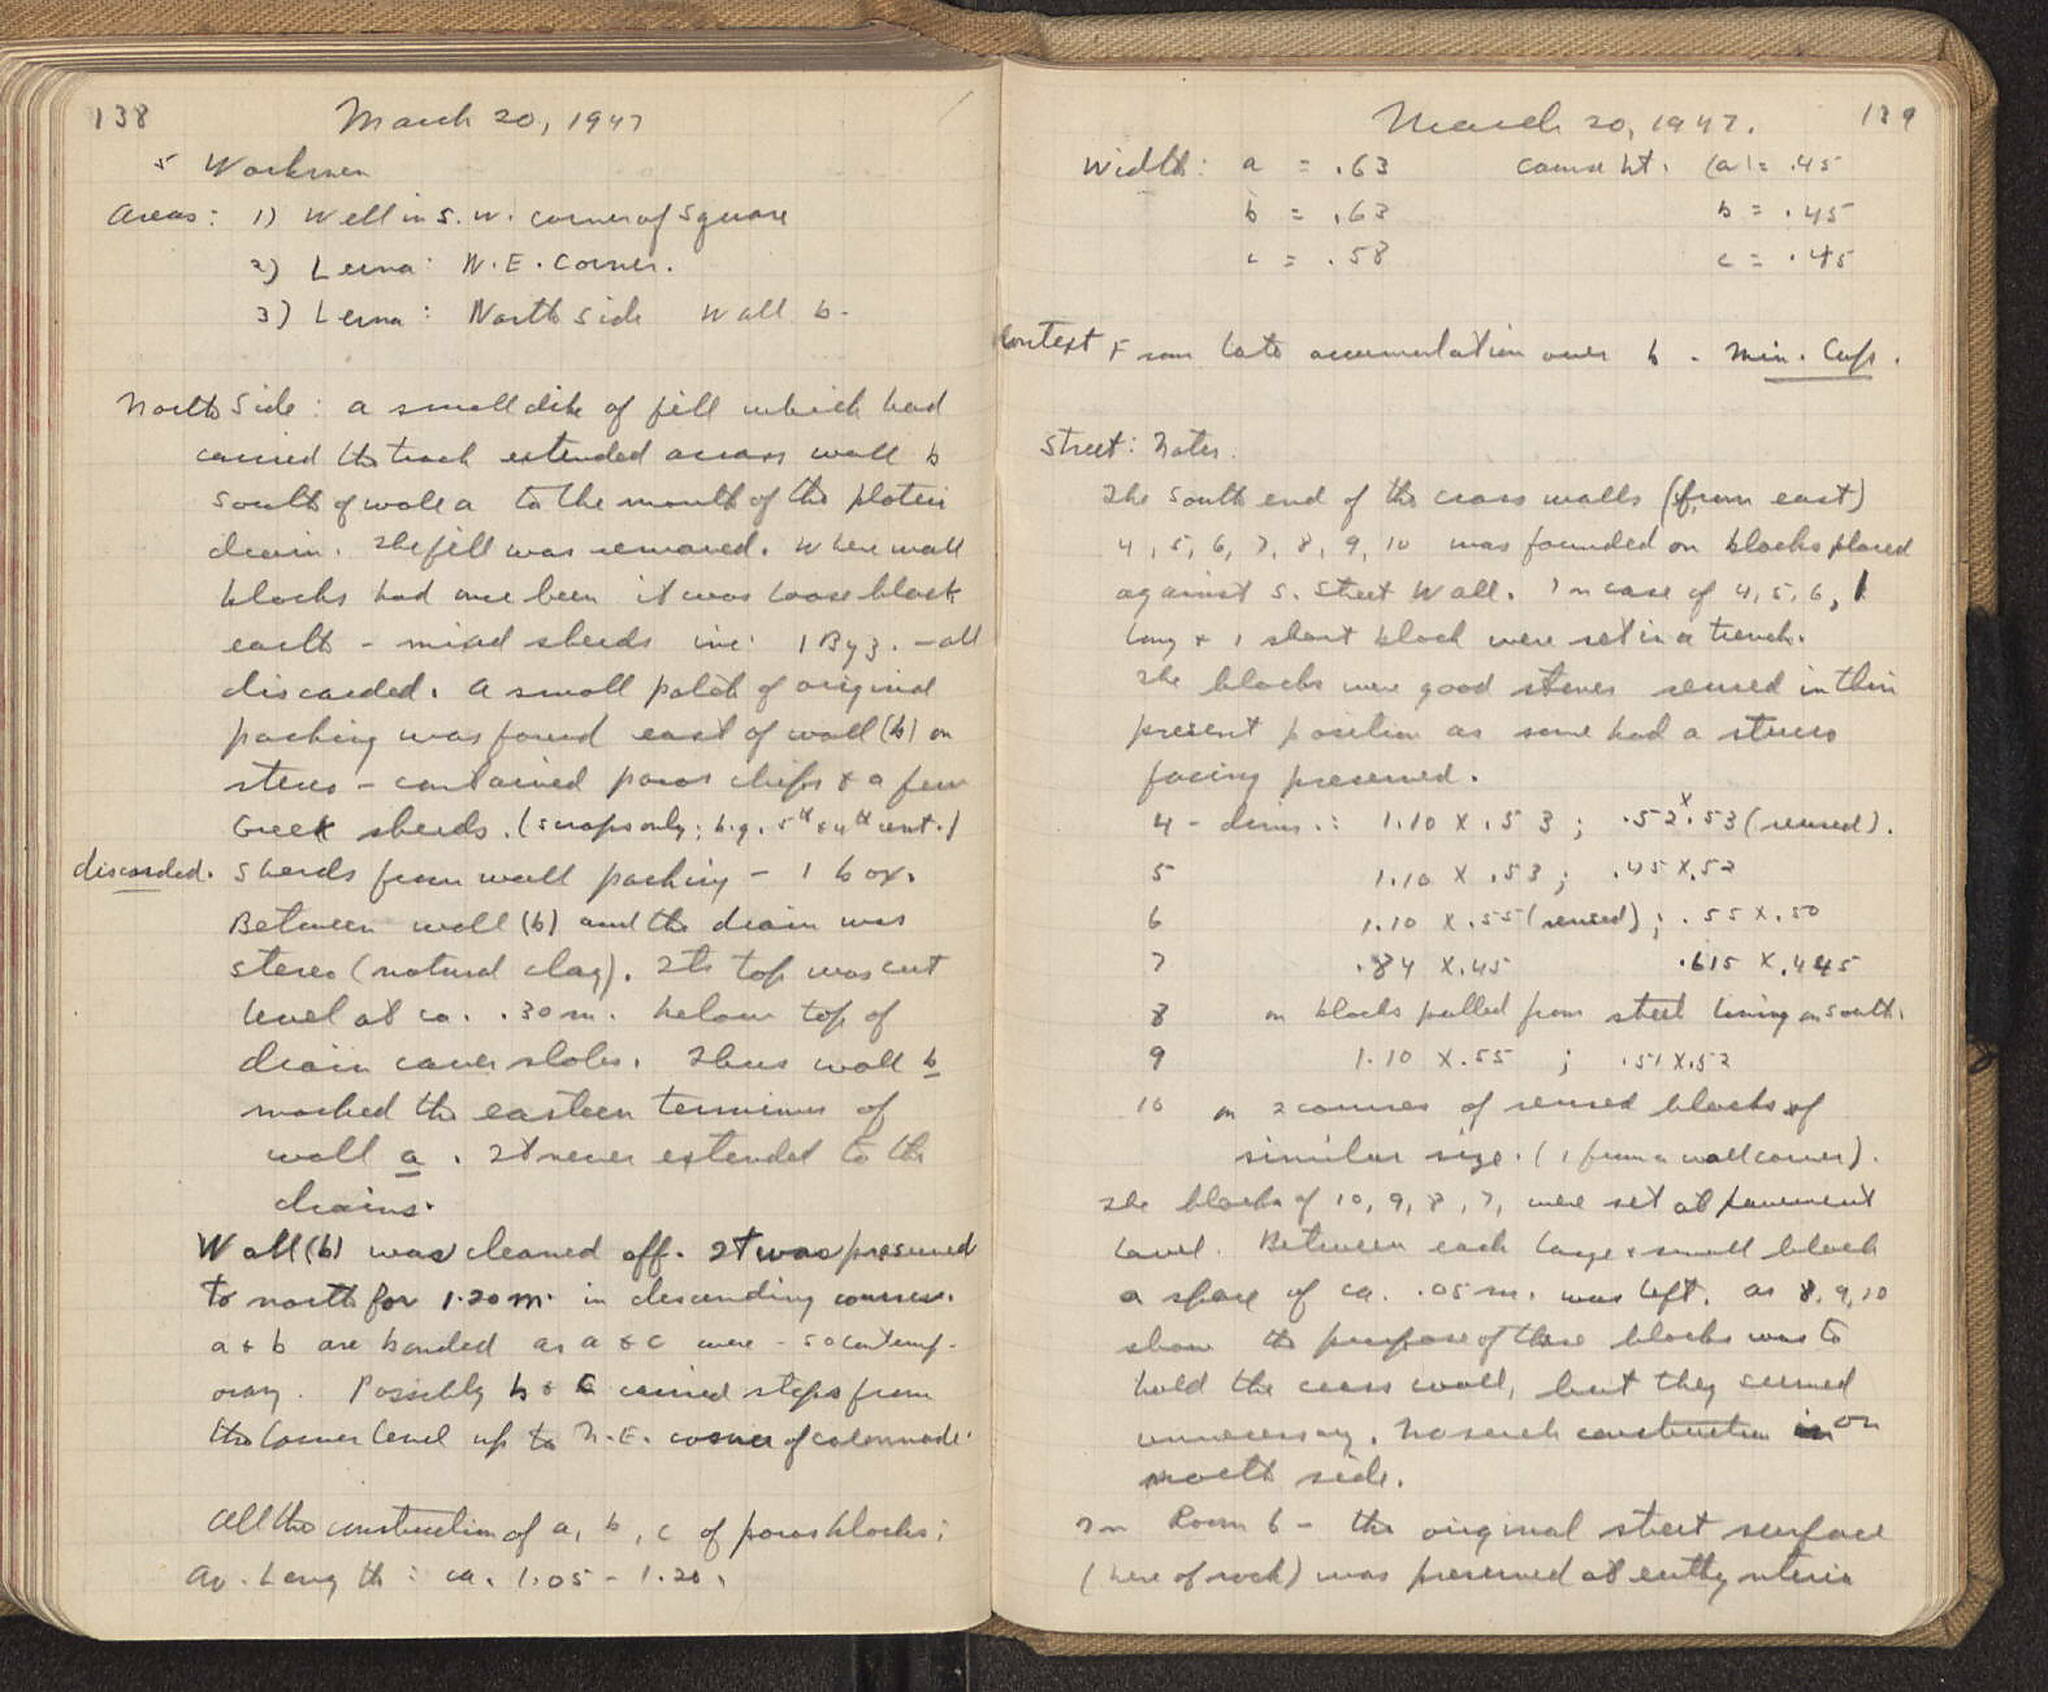 138 March 20, 1947
5 Workmen
Areas: 1) Well in S.W. corner of Square
2) Lerna: N.E. Corner.
3) Lerna: North Side Wall b.
North Side: A small dike of fill which had
carried the track extended across wall b
south of wall a to the mouth of the plateia
drain. The fill was removed. Where wall
blocks had once been it was loose black
earth - mixed sherds inc. 1 Byz. - all
discarded. A small patch of original
packing was found east of wall (b) on
stereo - contained poros chips & a few
Greek sherds. (scraps only; b.g. 5th & 4th cent.)
discarded. Sherds from wall packing - 1 box.
Between wall (b) and the drain was
stereo (natural clay). Its top was cut
level at ca. .30 m. below top of
drain cover slabs. Thus wall b
marked the eastern terminus of
wall a. It never extended to the
drains.
Wall (b) was cleaned off. It was preserved
to north for 1.20 m. in descending courses.
a & b are bonded as a & c were - so contemp-
orary. Possibly b & c carried steps from
the lower level up to N.E. corner of colonnade.
All the construction of a, b, c of poros blocks;
Av. Length: ca. 1.05 - 1.20.
March 20, 1947. 139
Width: a = .63 course ht. (a) = .45
b = .63 b = .45
c = .58 c = .45
Context From late accumulation over b - Min. Cups.
Street: Notes.
The south end of the cross walls (from east)
4, 5, 6, 7, 8, 9, 10 was founded on blocks placed
against S. Street Wall. In case of 4, 5, 6, 1
long & 1 short block were set in a trench.
The blocks were good stones reused in their
present position as some had a stucco
facing preserved.
4 - dim.: 1.10 X .53; .52 x .53 (reused).
5 1.10 X .53; .45 X .52
6 1.10 X .55 (reused); .55 X .50
7 .84 X .45 .615 X .445
8 on blocks pulled from street lining on south.
9 1.10 X .55 ; .51 X .52
10 on 2 courses of reused blocks of
similar size. (1 from a wall corner).
The blocks of 10, 9, 8, 7, were set at pavement
level. Between each large & small block
a space of ca. .05 m. was left. As 8, 9, 10
show the purpose of these blocks was to
hold the cross wall, but they seemed
unnecessary. No such construction on
north side.
In Room 6 - the original street surface
(here of rock) was preserved at